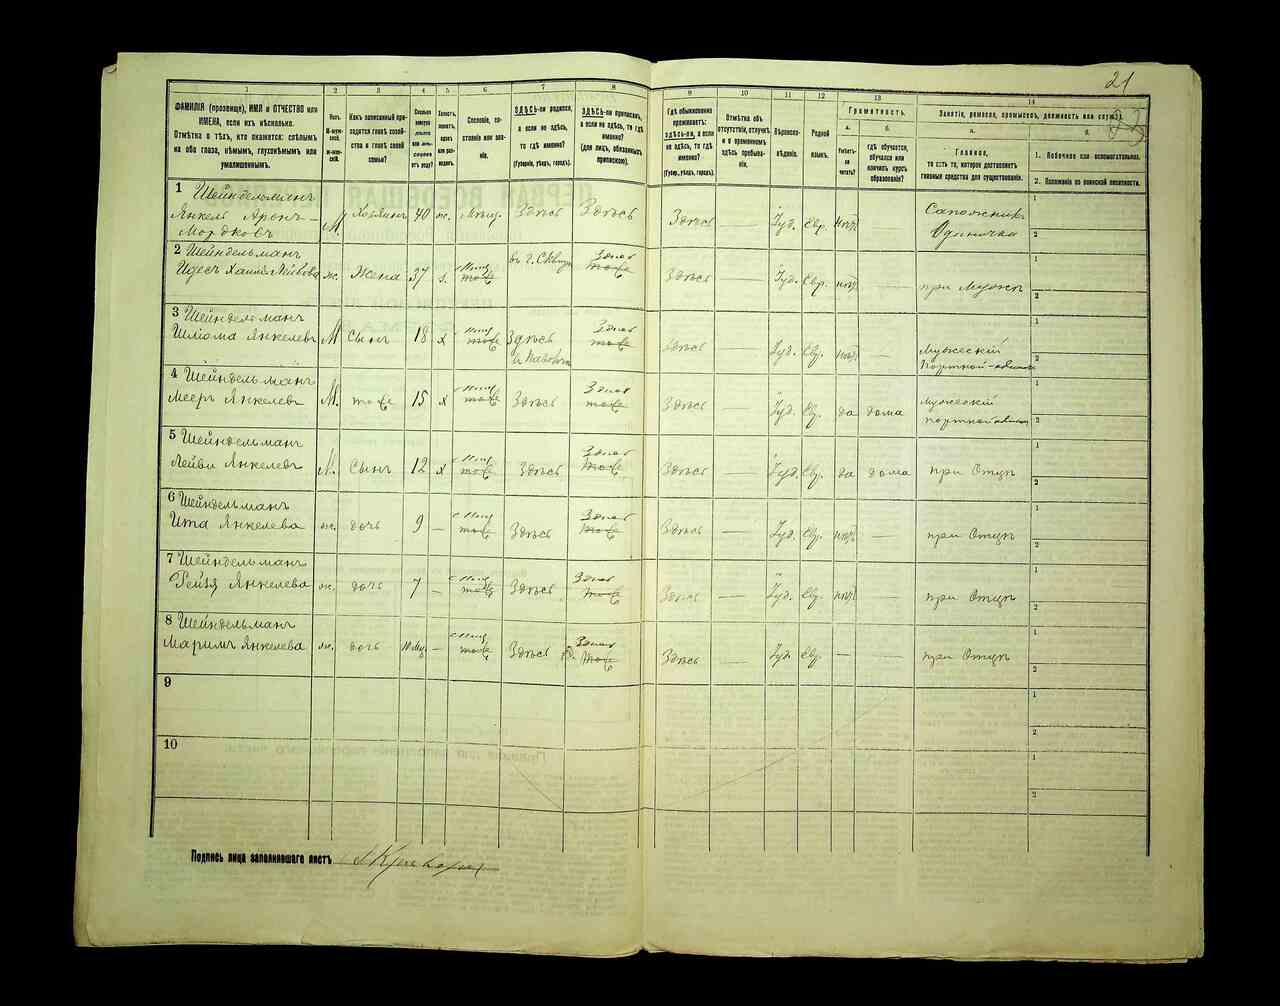 21
1 2 3 4 5 6 7 8 9 10 11 12 13 14
ФАМИЛІЯ (прозвище), ИМЯ и ОТЧЕСТВО или
ИМЕНА, если ихъ нѣсколько.
Отмѣтка о тѣхъ, кто окажется: слѣпымъ
на оба глаза, нѣмымъ, глухонѣмымъ или
умалишеннымъ.
Полъ.
М-мужской.
Ж-женскій.
Какъ записанный приходится главѣ хозяйства и главѣ своей семьи?
Сословіе, состояніе или званіе.
ЗДѢСЬ-ли родился, а если не здѣсь, то гдѣ именно?
(Губернія, уѣздъ, городъ).
ЗДѢСЬ-ли приписанъ, а если не здѣсь, то гдѣ именно?
(для лицъ, обязанныхъ припискою).
Гдѣ обыкновенно проживаетъ: здѣсь-ли, а если не здѣсь, то гдѣ именно?
(Губерн., уѣздъ, городъ).
Отмѣтка объ отсутствіи, отлучкѣ и о временномъ здѣсь пребываніи.
Вѣроисповѣданіе.
Родной языкъ.
Грамотность.
а. б.
Умѣетъ-ли читать?
гдѣ обучается, обучался или кончилъ курсъ образованія?
Занятіе, ремесло, промыселъ, должность или служба.
а. б.
Главное,
то есть то, которое доставляетъ главныя средства для существованія.
1. Побочное или вспомогательное.
2. Положеніе по воинской повинности.
1 Шейндельманъ
Янкель Аронъ-
Мордковъ М. Хозяинъ 40 ж. Мѣщ. Здѣсь Здѣсь Здѣсь — Іуд. Евр. нѣтъ — Сапожникъ
Одиночка
2 Шейндельманъ
Идесъ Хаимъ-Лейбова ж. Жена 37 з. тоже въ г. Сквирѣ тоже Здѣсь — Іуд. Евр. нѣтъ — при Мужѣ
3 Шейндельманъ
Шліома Янкелевъ М Сынъ 18 х тоже Здѣсь тоже Здѣсь — Іуд. Евр. нѣтъ — Мужескій
Портной
4 Шейндельманъ
Мееръ Янкелевъ М. тоже 15 х тоже Здѣсь тоже Здѣсь — Іуд. Евр. да дома Мужеской
портной
5 Шейндельманъ
Лейви Янкелевъ М. Сынъ 12 х тоже Здѣсь тоже Здѣсь — Іуд. Евр. да дома при Отцѣ
6 Шейндельманъ
Ита Янкелева ж. дочь 9 — тоже Здѣсь тоже Здѣсь — Іуд. Евр. нѣтъ — при Отцѣ
7 Шейндельманъ
Рейзя Янкелева ж. дочь 7 — тоже Здѣсь тоже Здѣсь — Іуд. Евр. нѣтъ — при Отцѣ
8 Шейндельманъ
Маримъ Янкелева ж. дочь 10 Мц. — тоже Здѣсь тоже Здѣсь — Іуд. Евр. — — при Отцѣ
9
10
Подпись лица заполнившаго листъ